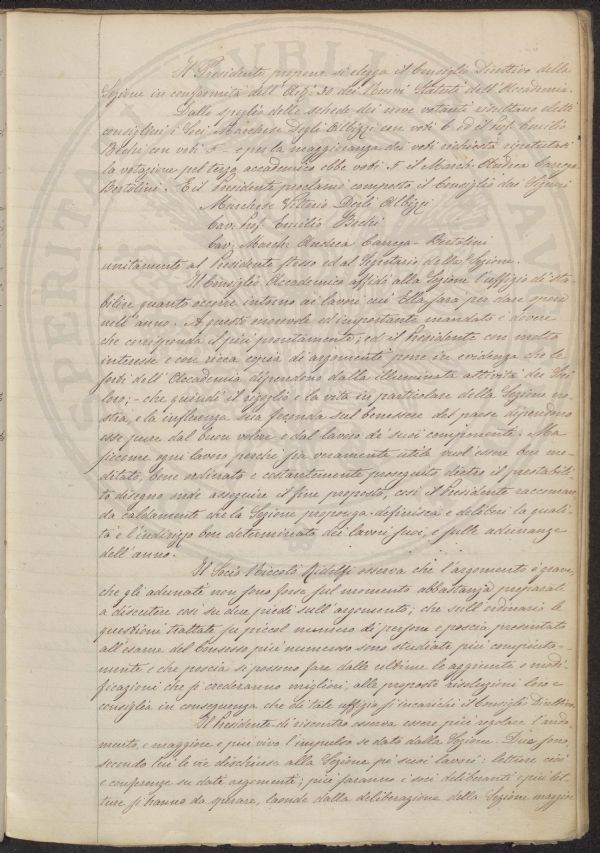 Il Presidente propone si elegga il Consiglio Direttivo della
Sezione in conformità dell' Art. 30 dei Nuovi Statuti dell' Accademia.
Dallo spoglio delle schede dei nove votanti risultano eletti
consiglieri i Soci Marchese Degli Albizzi con voti 6 ed il Prof. Emilio
Bechi con voti 5 - e per la maggioranza dei voti richiesta ripetutasi
la votazione pel terzo accademico ebbe voti 5 il March. Andrea Carrega
Bertolini. E il Presidente proclamò composto il Consiglio dai Signori
Marchese Vittorio Degli Albizzi
Cav. Prof. Emilio Bechi
Cav. March. Andrea Carrega-Bertolini
unitamente al Presidente stesso ed al Segretario della Sezione.
Il Consiglio Accademico affidò alla Sezione l'uffizio di sta-
bilire quanto occorre intorno ai lavori cui Ella sarà per dare opera
nell' anno. A questo onorevole ed importante mandato è dovere
che corrisponda il più prontamente; ed il Presidente con molto
interesse e con vicca copia di argomenti pone in evidenza che le
sorti dell' Accademia dipendono dalla illuminata attività dei Soci
loro; - che quindi il rigoglio e la vita in particolare della Sezione no-
stra, e la influenza sua feconda sul benessere del paese dipendono
esse pure dal buon volere e dal lavoro de' suoi componenti. Ma
siccome ogni lavoro perchè sia veramente utile vuol essere ben me-
ditato, bene ordinato e costantemente proseguito dietro il prestabili-
to disegno onde asseguire il fine proposto, così il Presidente raccoman-
da caldamente che la Sezione proponga definisca e deliberi la quali-
tà e l'indirizzo ben determinato dei lavori suoi e sulle adunanze
dell' anno.
Il Socio Niccolò Ridolfi osserva che l'argomento è grave,
che gli adunati non sono forse sul momento abbastanza preparati
a discutere così su due piedi sull' argomento; che sull' ordinario le
questioni trattate su piccol numero di persone e poscia presentate
all' esame del Consesso più numeroso sono studiate più compiuta-
mente e che poscia si possono fare dalle ultime le aggiunte o modi-
ficazioni che si crederanno migliori, alle proposte risoluzioni loro e
consiglia in conseguenza che di tale uffizio si incarichi il Consiglio Direttivo.
Il Presidente di riscontro osserva essere più regolare l'anda-
mento, e maggiore e più vivo l'impulso se dato dalla Sezione. Due sono,
secondo lui le vie dischiuse alla Sezione pe' suoi lavori: letture cioè
e conferenze su dati argomenti; più saranno i soci deliberanti e più let-
ture si hanno da sperare, laonde dalla deliberazione della Sezione maggior